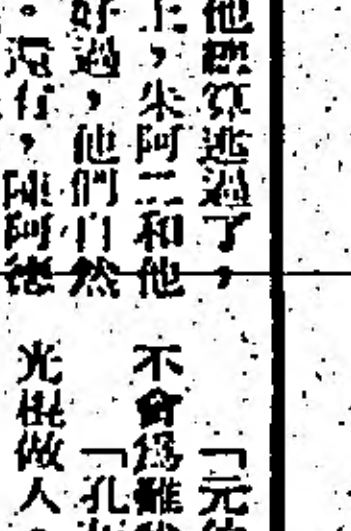 他總算逃過了，
上，朱阿二和他
好過，他們自然
。還有，陳阿
「元
不會爲難
「孔
光棍做人